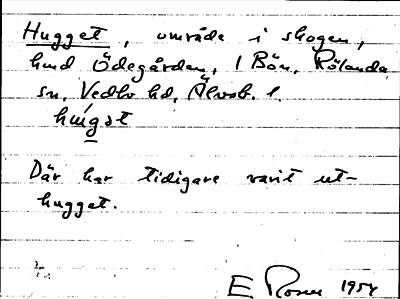 Hugget, område i skogen,
hmd Ödegården, 1 Bön, Rölanda
sn, Vedbo hd, Älvsb. l.
Där har tidigare varit ut-
hugget.
E Rosen 1954